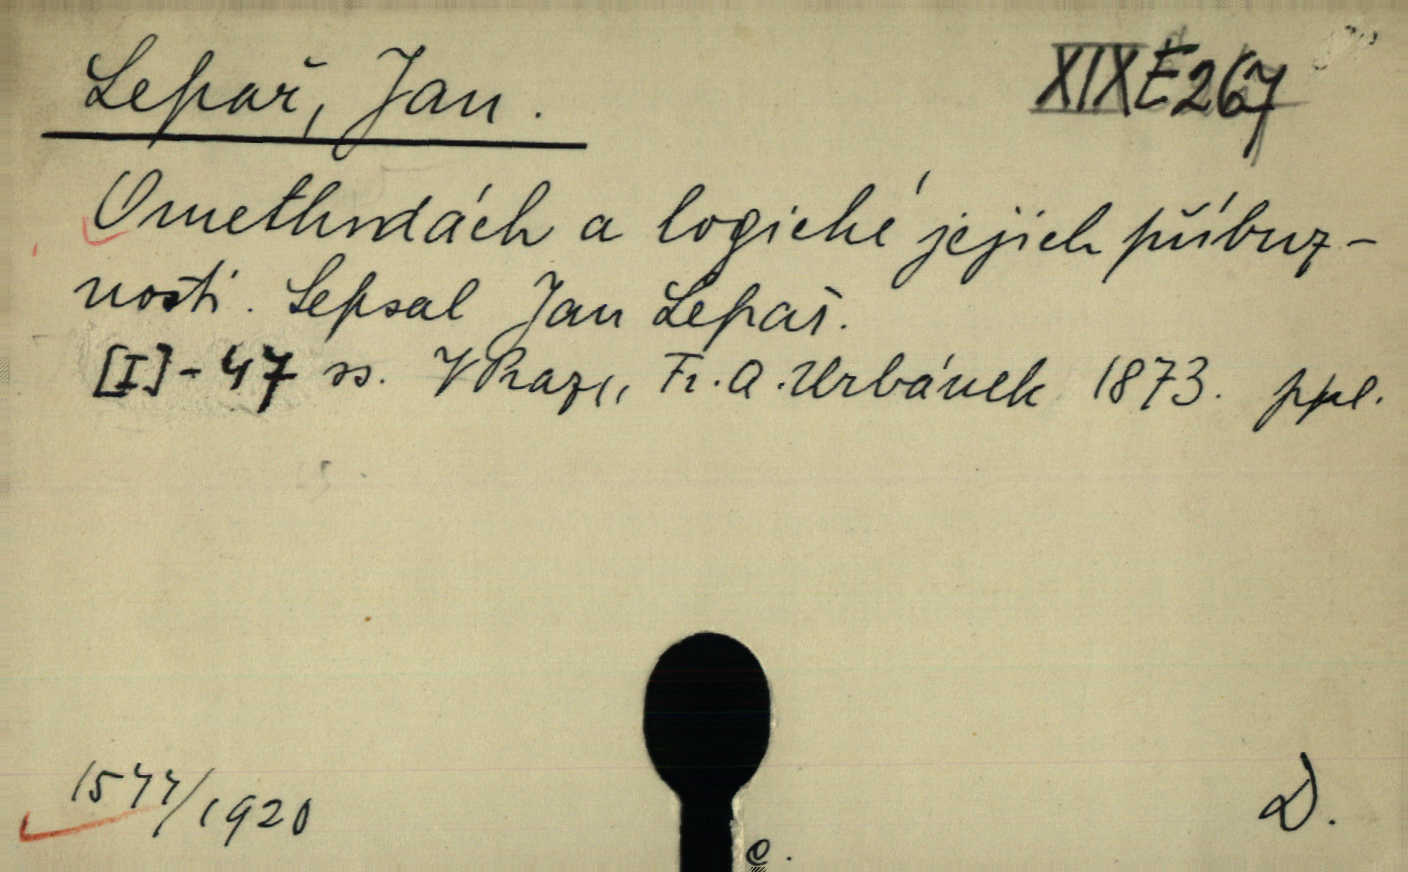 Lepař, Jan.
XIX E 267
O methodách a logické jejich příbuz-
nosti. Sepsal Jan Lepař.
[I]-47 ss. V Praze, Fr. A. Urbánek 1873. ppl.
1544/1920
D.
e.